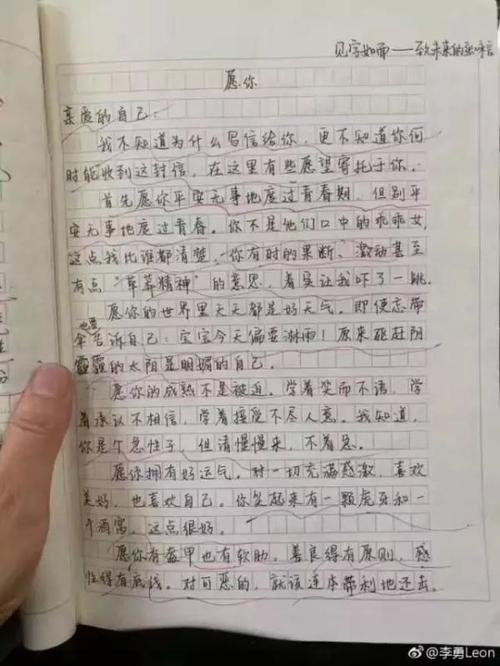 见字如面——致未来的张嘻言
愿你
亲爱的自己：
我不知道为什么写信给你，更不知道你何
时能收到这封信，在这里有些愿望寄托于你。
首先愿你平安无事地度过青春期，但别平
安无事地度过青春。你不是他们口中的乖乖女，
这点我比谁都清楚，你有时的果断、激动甚至
有点“草莽精神”的意思，着实让我吓了一跳。
愿你的世界里天天都是好天气。即使忘带
伞也要告诉自己：宝宝今天偏要淋雨！原来能赶阴
霾的太阳是明媚的自己。
愿你的成熟不是被迫。学着笑而不语，学
着承认不相信，学着接受不尽人意。我知道，
你是个急性子，但请慢慢来，不着急。
愿你拥有好运气。对一切充满感激，喜欢
美好，也喜欢自己。你笑起来有一颗虎牙和一
个酒窝，这点很好。
愿你有盔甲也有软肋。善良得有原则，感
性得有底线。对可恶的，就该连本带利地还击。
@李勇Leon